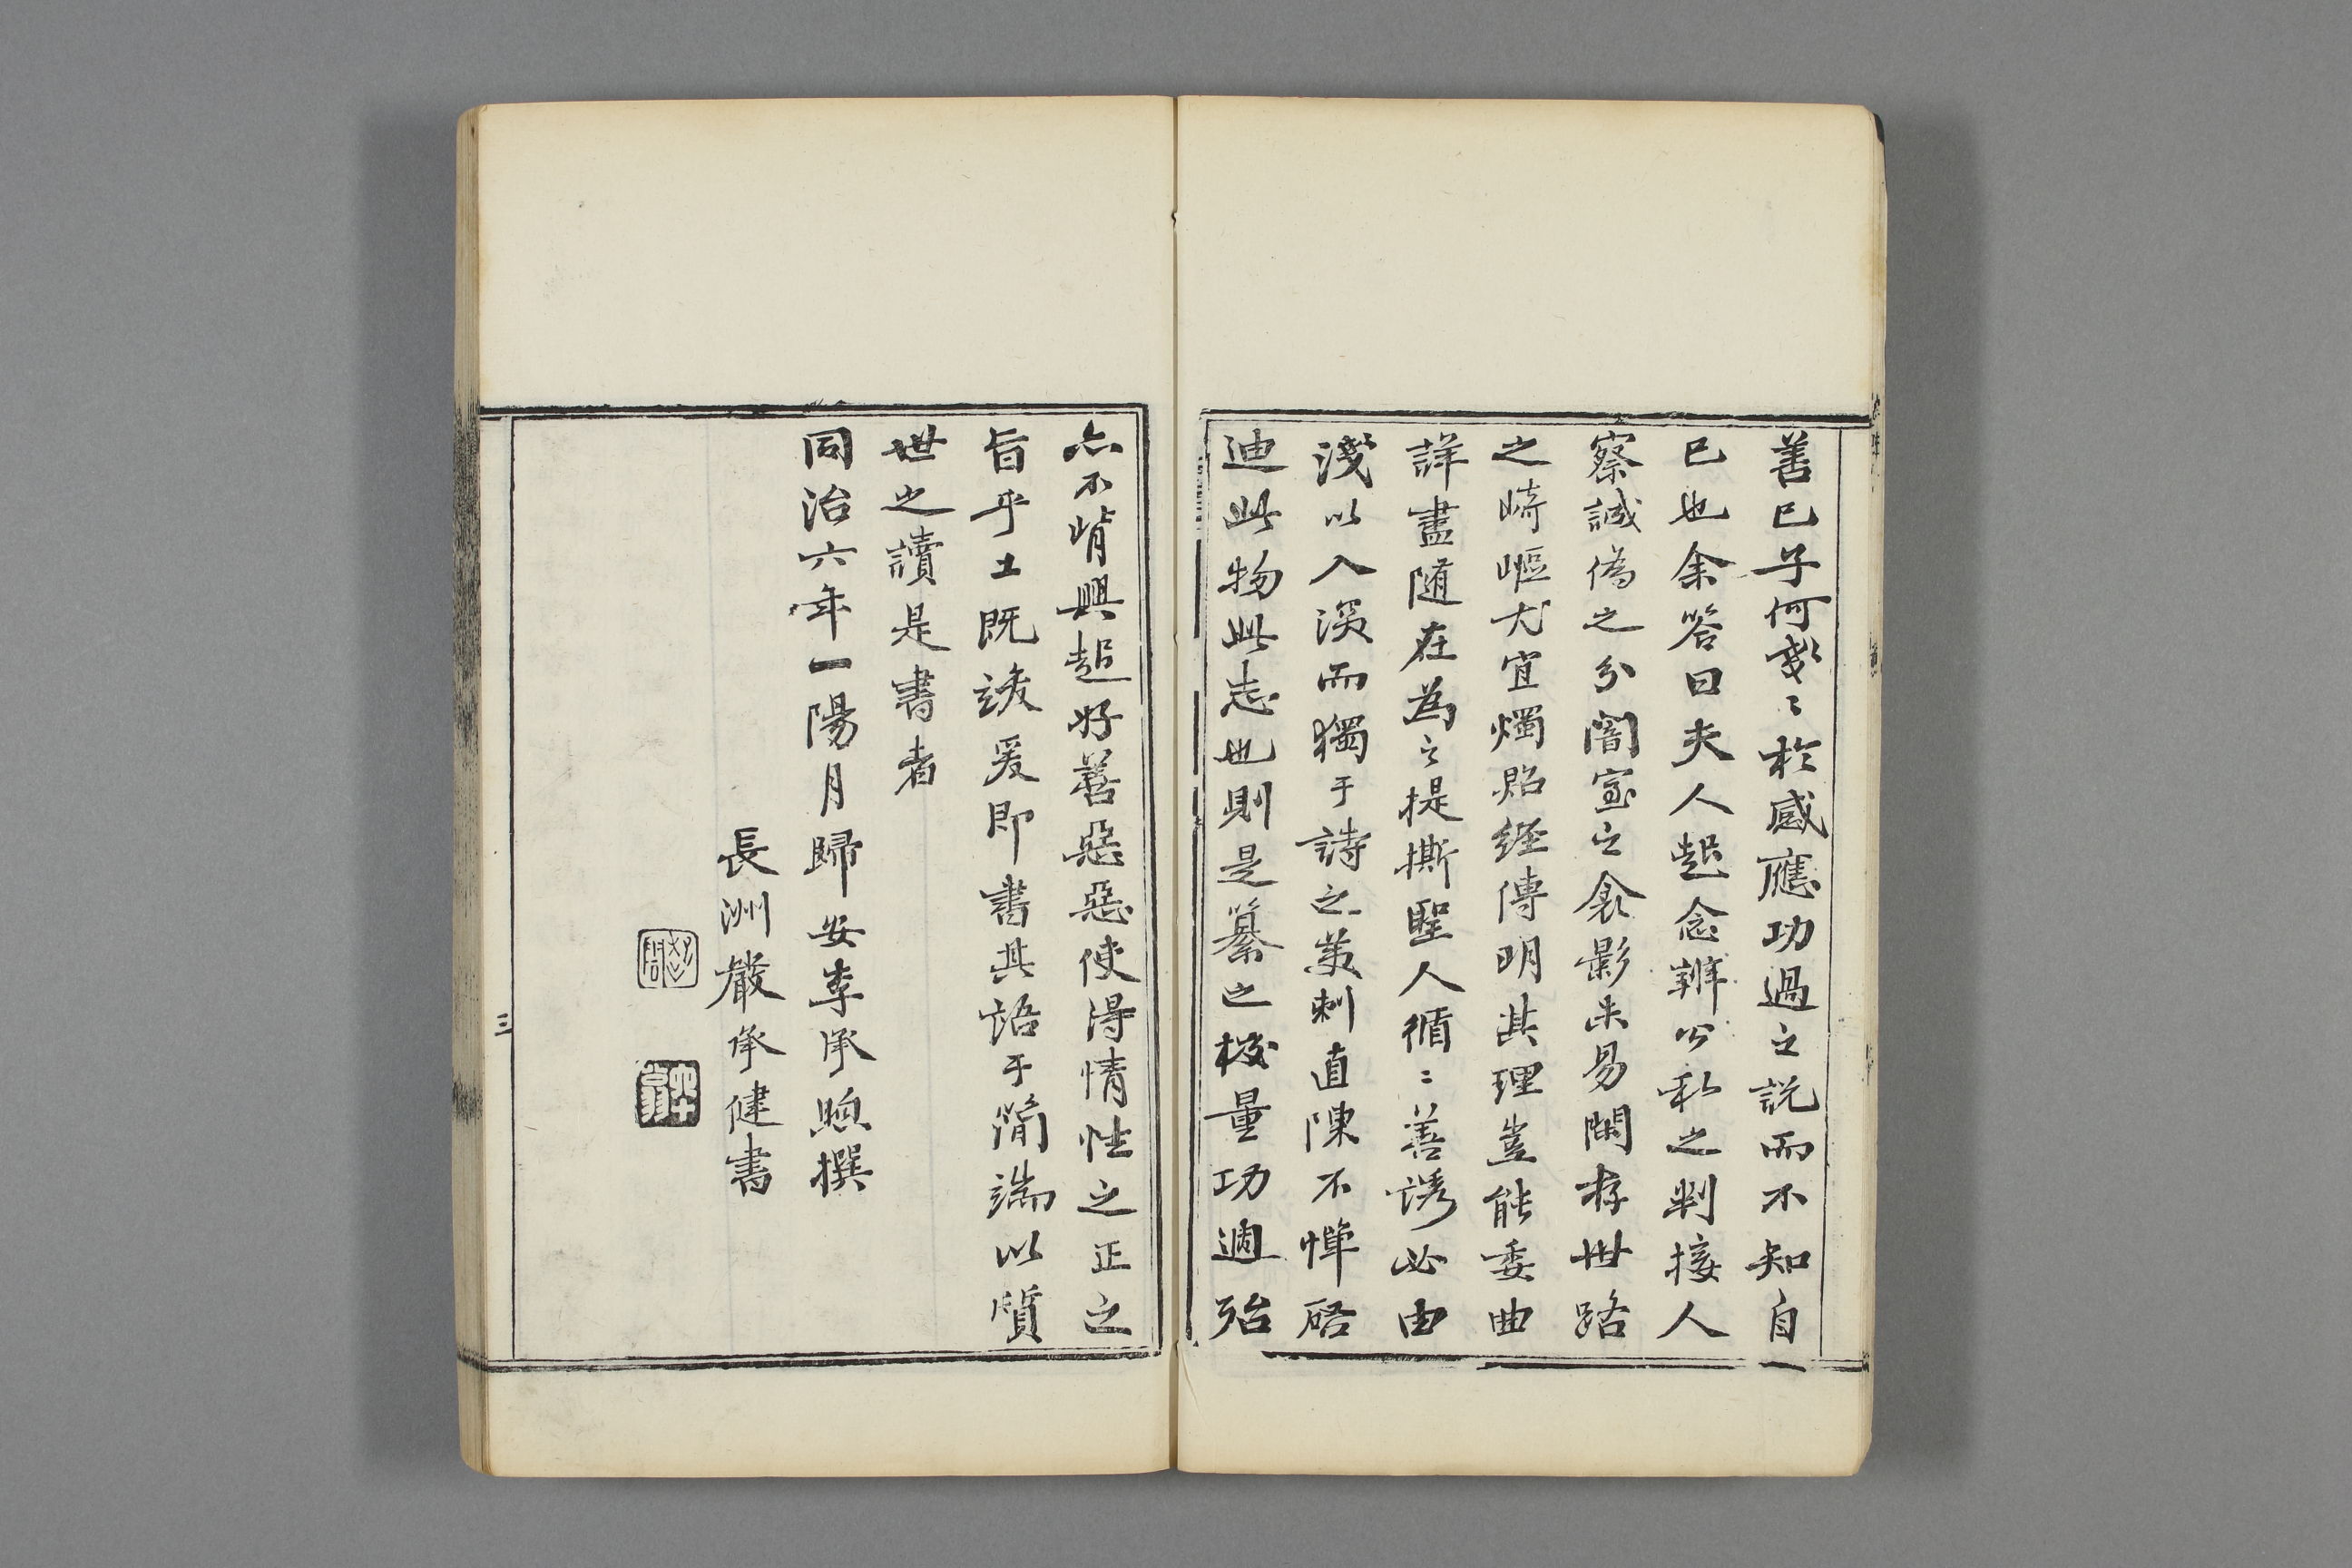 善已子何戔〻於感應功過之説而不知自
已也余答曰夫人起念辨公私之判接人
察誠偽之分闇室之衾影未易閑存世路
之崎嶇尤宜燭照經傳明其理豈能委曲
詳盡随在為之提撕聖人循〻善誘必由
淺以入深而獨于詩之美刺直陳不憚啓
迪此物此志也則是纂之校量功過殆
亦不啻興起好善惡惡使得情性之正之
旨乎工既竣爰即書其語于簡端以質
世之讀是書者
同治六年一陽月歸安李承煦撰
長洲嚴承健書
三